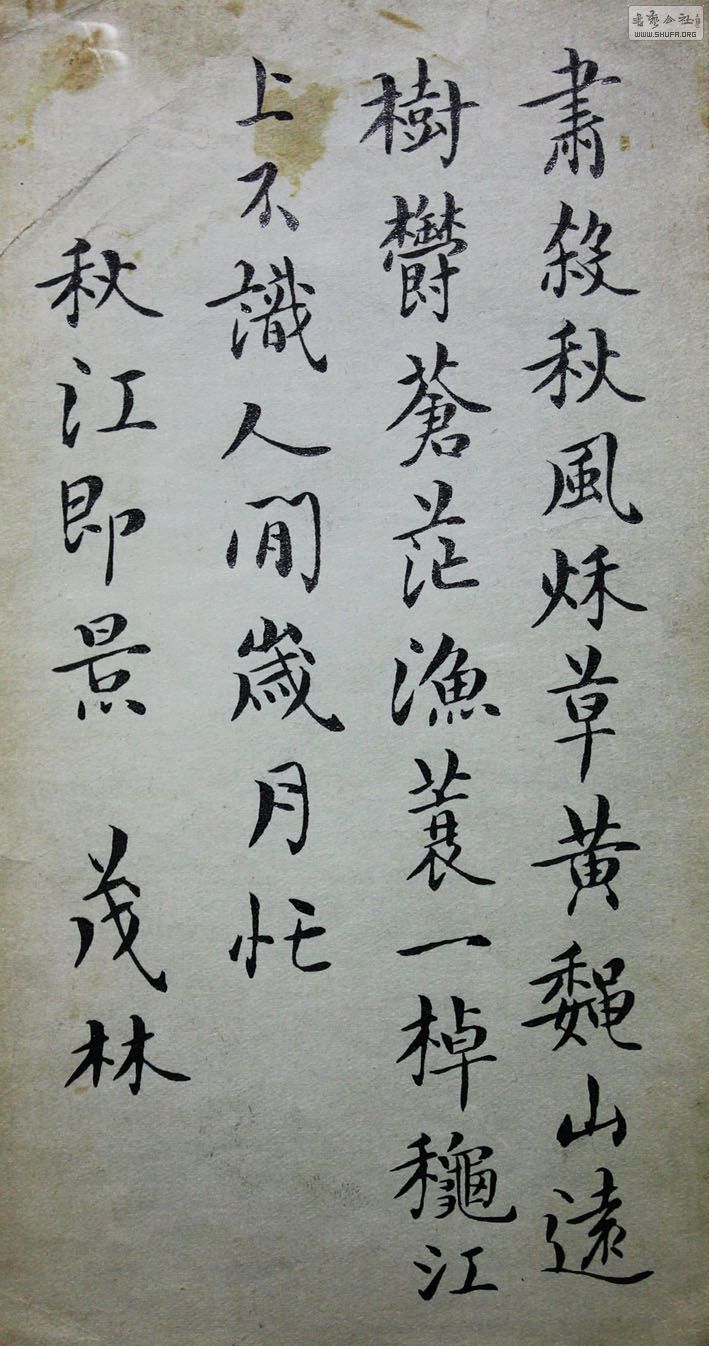 肅殺秋風秌草黃魏山遠
樹鬱蒼茫漁蓑一棹龝江
上不識人閒歲月忙
秋江即景 茂林
書藝公社
WWW.SHUFA.ORG